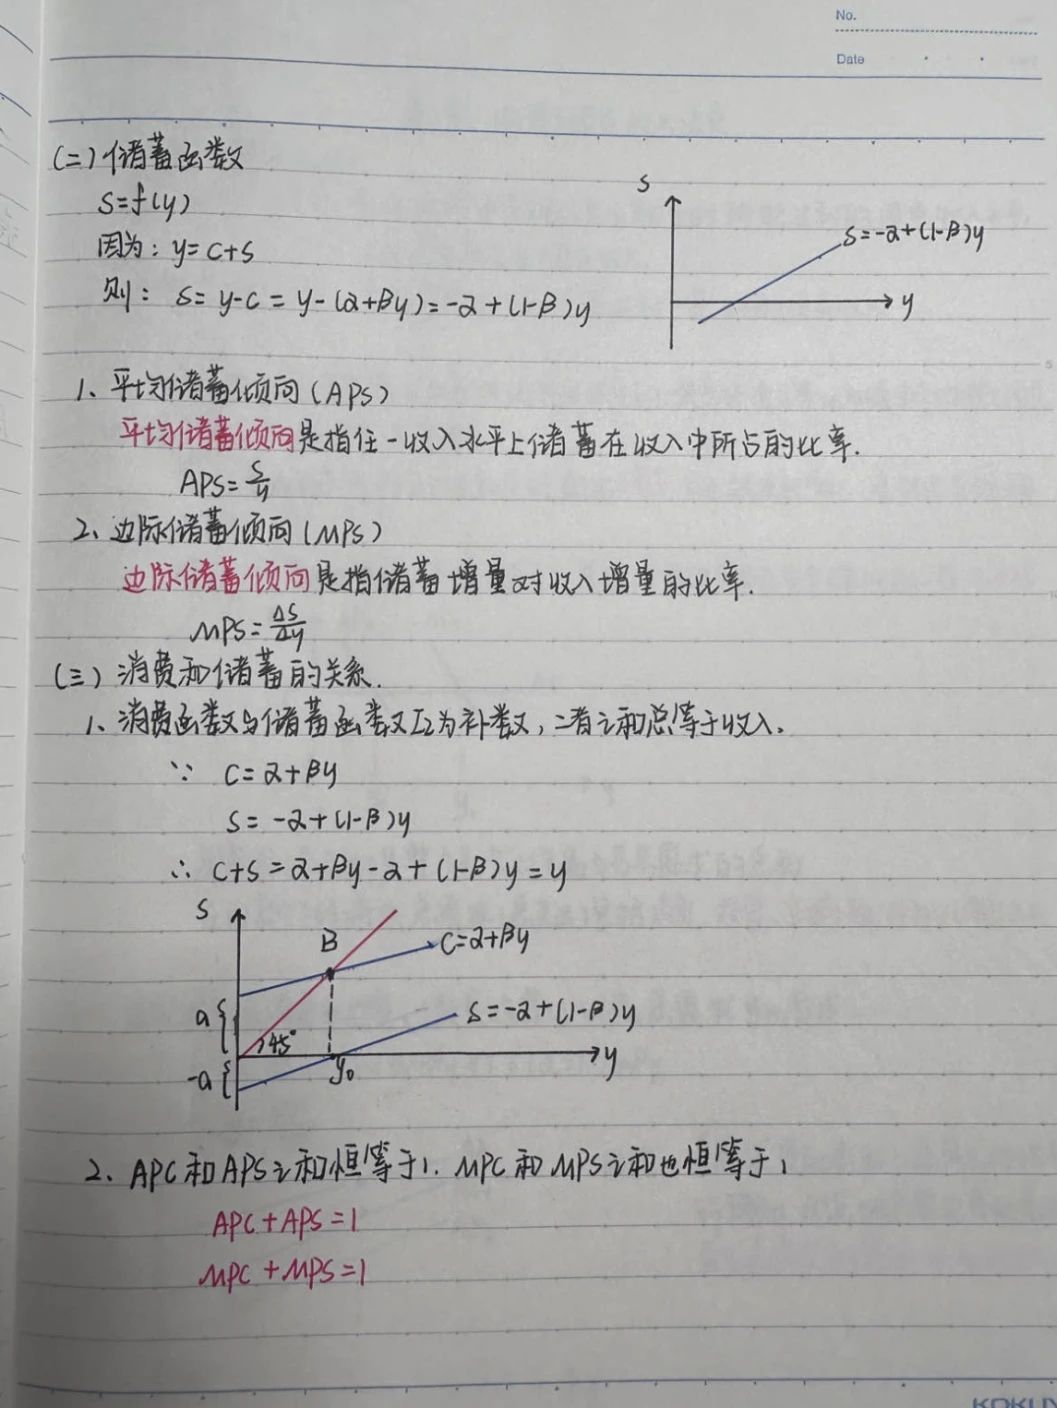 No.
Date
(二)储蓄函数
S=f(y)
因为: y=c+s
则: s=y-c=y-(α+βy)=-α+(1-β)y
S
s=-α+(1-β)y
y
1、平均储蓄倾向(APS)
平均储蓄倾向是指任一收入水平上储蓄在收入中所占的比率.
APS=s/y
2、边际储蓄倾向(MPS)
边际储蓄倾向是指储蓄增量对收入增量的比率.
MPS=Δs/Δy
(三)消费和储蓄的关系.
1、消费函数与储蓄函数互为补数,二者之和总等于收入.
∵ c=α+βy
s=-α+(1-β)y
∴ c+s=α+βy-α+(1-β)y=y
S
B
c=α+βy
a
s=-α+(1-β)y
45°
y
-a
y₀
2、APC和APS之和恒等于1. MPC和MPS之和也恒等于1
APC+APS=1
MPC+MPS=1